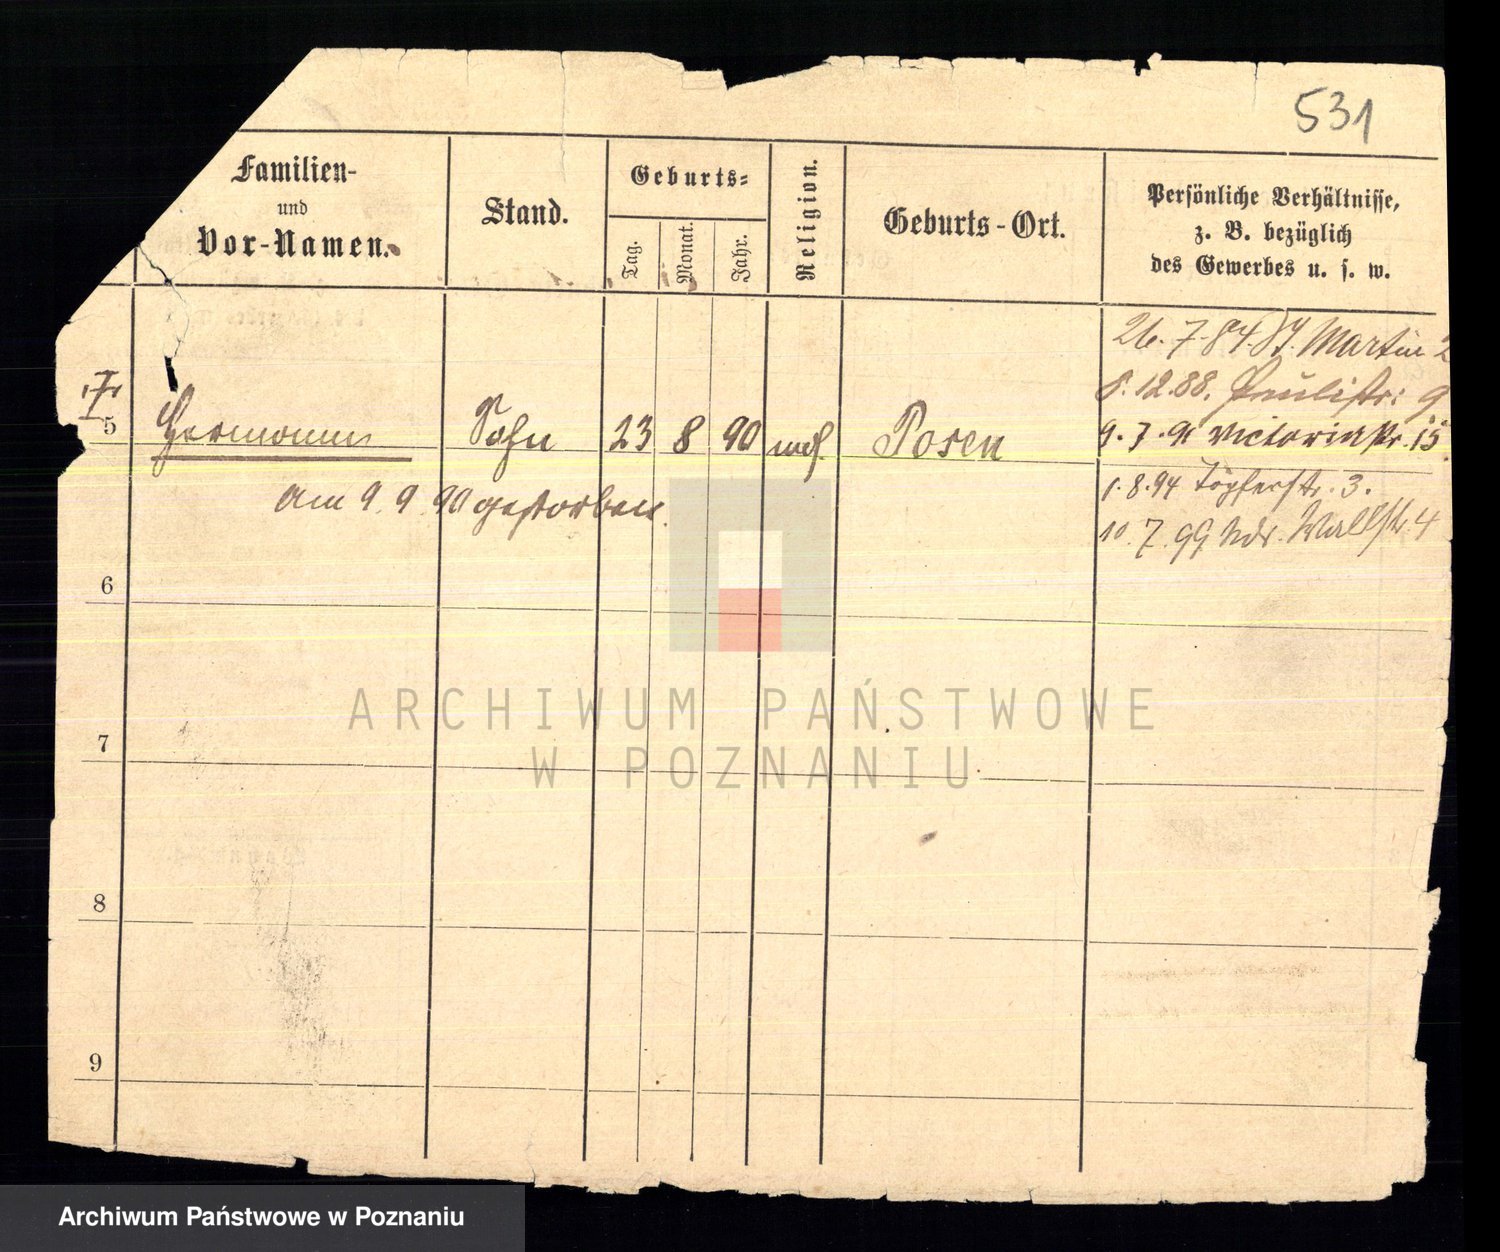 531
Familien-
und
Vor-Namen.
Stand.
Geburts-
Tag.
Monat.
Jahr.
Religion.
Geburts-Ort.
Persönliche Verhältnisse,
z. B. bezüglich
des Gewerbes u. s. w.
26. 7. 84. St. Martin 2
8. 12. 88. Paulistr: 9
5 Hermann Sohn 23 8 90 mos Posen 9. 7. 91 Victoriastr. 15
1. 8. 94 Töpferstr. 3.
am 9. 9. 90 gestorben.
10. 7. 99 Ndr. Wallstr. 4
6
7
8
9
ARCHIWUM PAŃSTWOWE
W POZNANIU
Archiwum Państwowe w Poznaniu